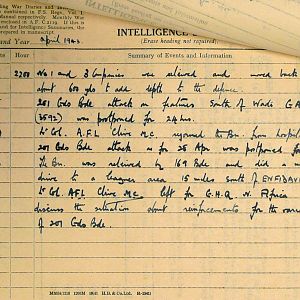 ing War Diaries and
contained in F.S. Regs., Vol. I.
Monthly War
enclosed in A.F. C.2119. If this is
and for Intelligence Summaries,
prepared in manuscript.
INTELLIGENCE
(Erase heading not required).
and Year April 1943
Hour
Summary of Events and Information
2200 No 1 and 3 Companies was relieved and moved back
about 600 yds to add depth to the defence.
201 Gds Bde attack on features South of Wadi
3592) was postponed for 24 hrs.
Lt Col. A.F.L Clive M.C. rejoined the Bn. from hospital
201 Gds Bde attack as for 25 Apr was postponed for
The Bn. was relieved by 169 Bde and did a
drive to a leaguer area 15 miles south of ENFIDAVI
Lt Col. A.F.L Clive M.C. left for G.H.Q. N. Africa
discuss the situation about reinforcements for the
of 201 Gds Bde.
H.B. & Co. Ltd.